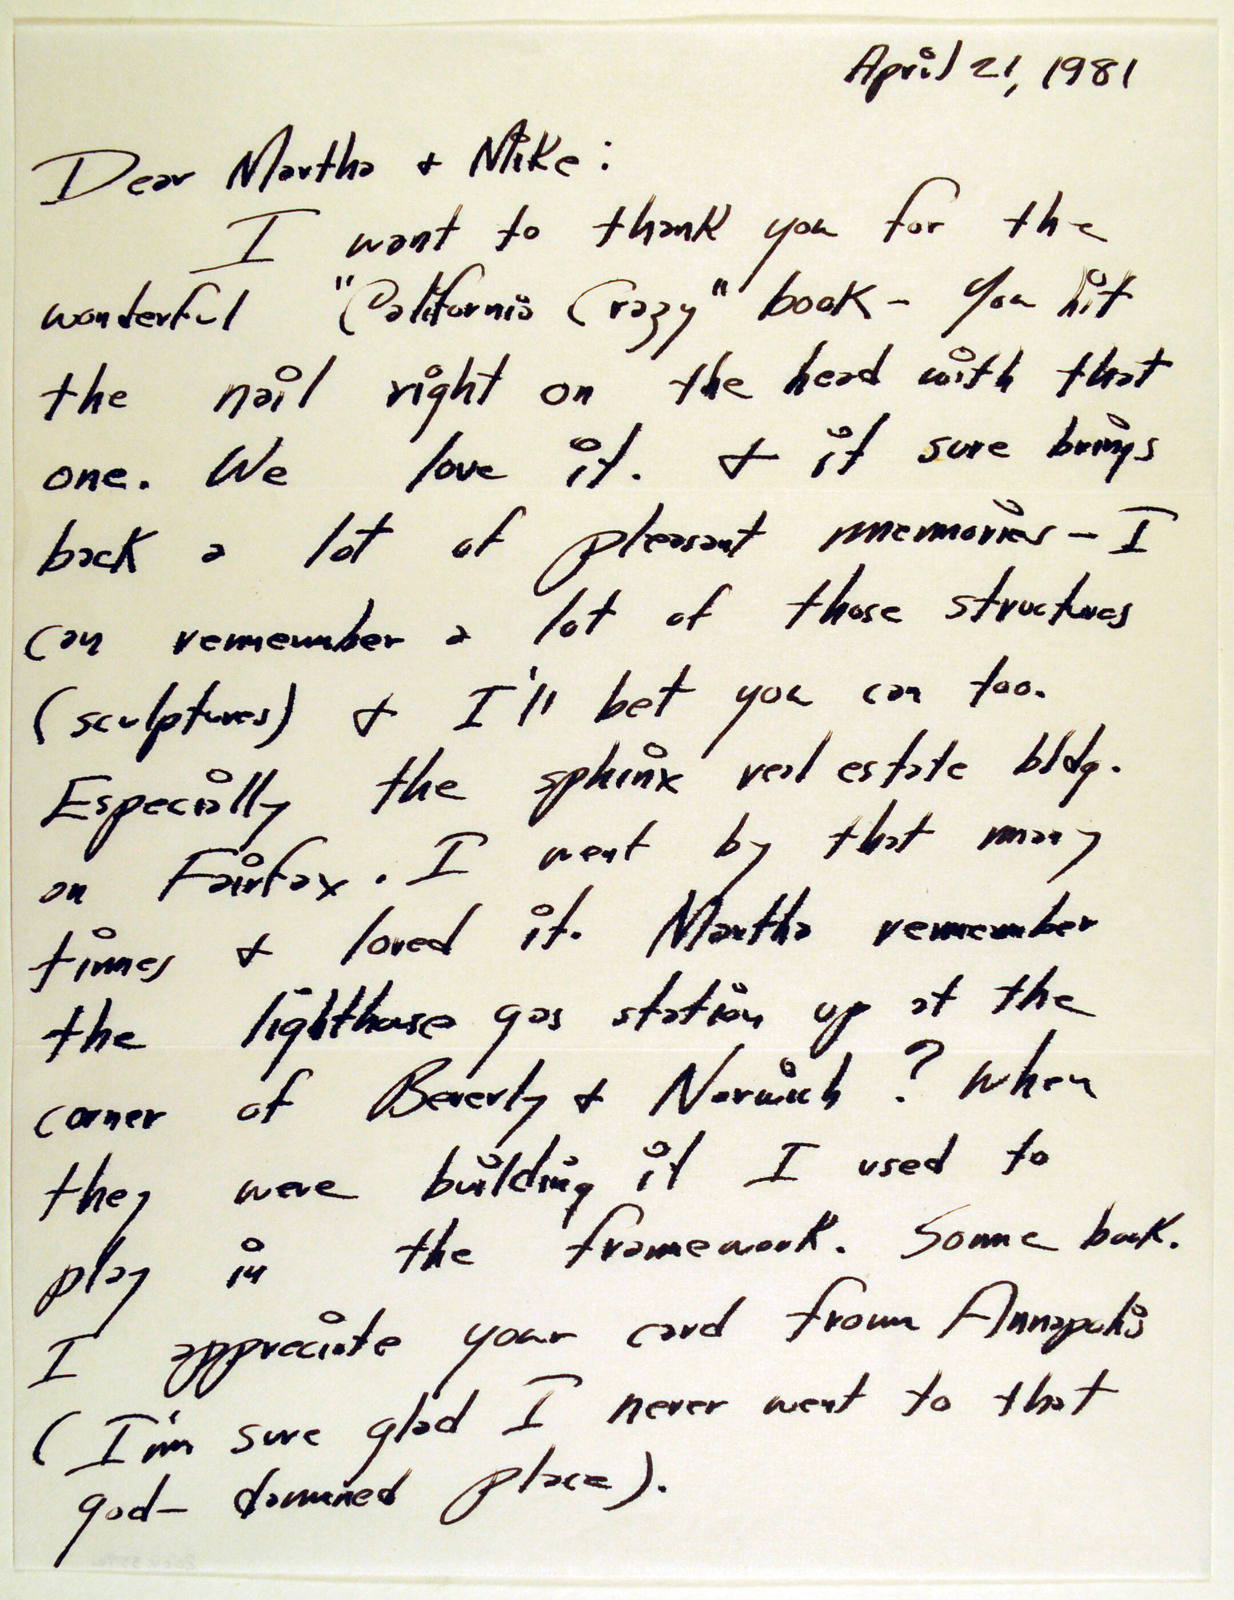 April 21, 1981
Dear Martha & Mike:
I want to thank you for the
wonderful "California Crazy" book - You hit
the nail right on the head with that
one. We love it. & it sure brings
back a lot of pleasant memories - I
can remember a lot of those structures
(sculptures) & I'll bet you can too.
Especially the sphinx real estate bldg.
on Fairfax. I went by that many
times & loved it. Martha remember
the lighthouse gas station up at the
corner of Beverly & Norwich? When
they were building it I used to
play in the framework. Some book.
I appreciate your card from Annapolis
(I'm sure glad I never went to that
god-damned place).